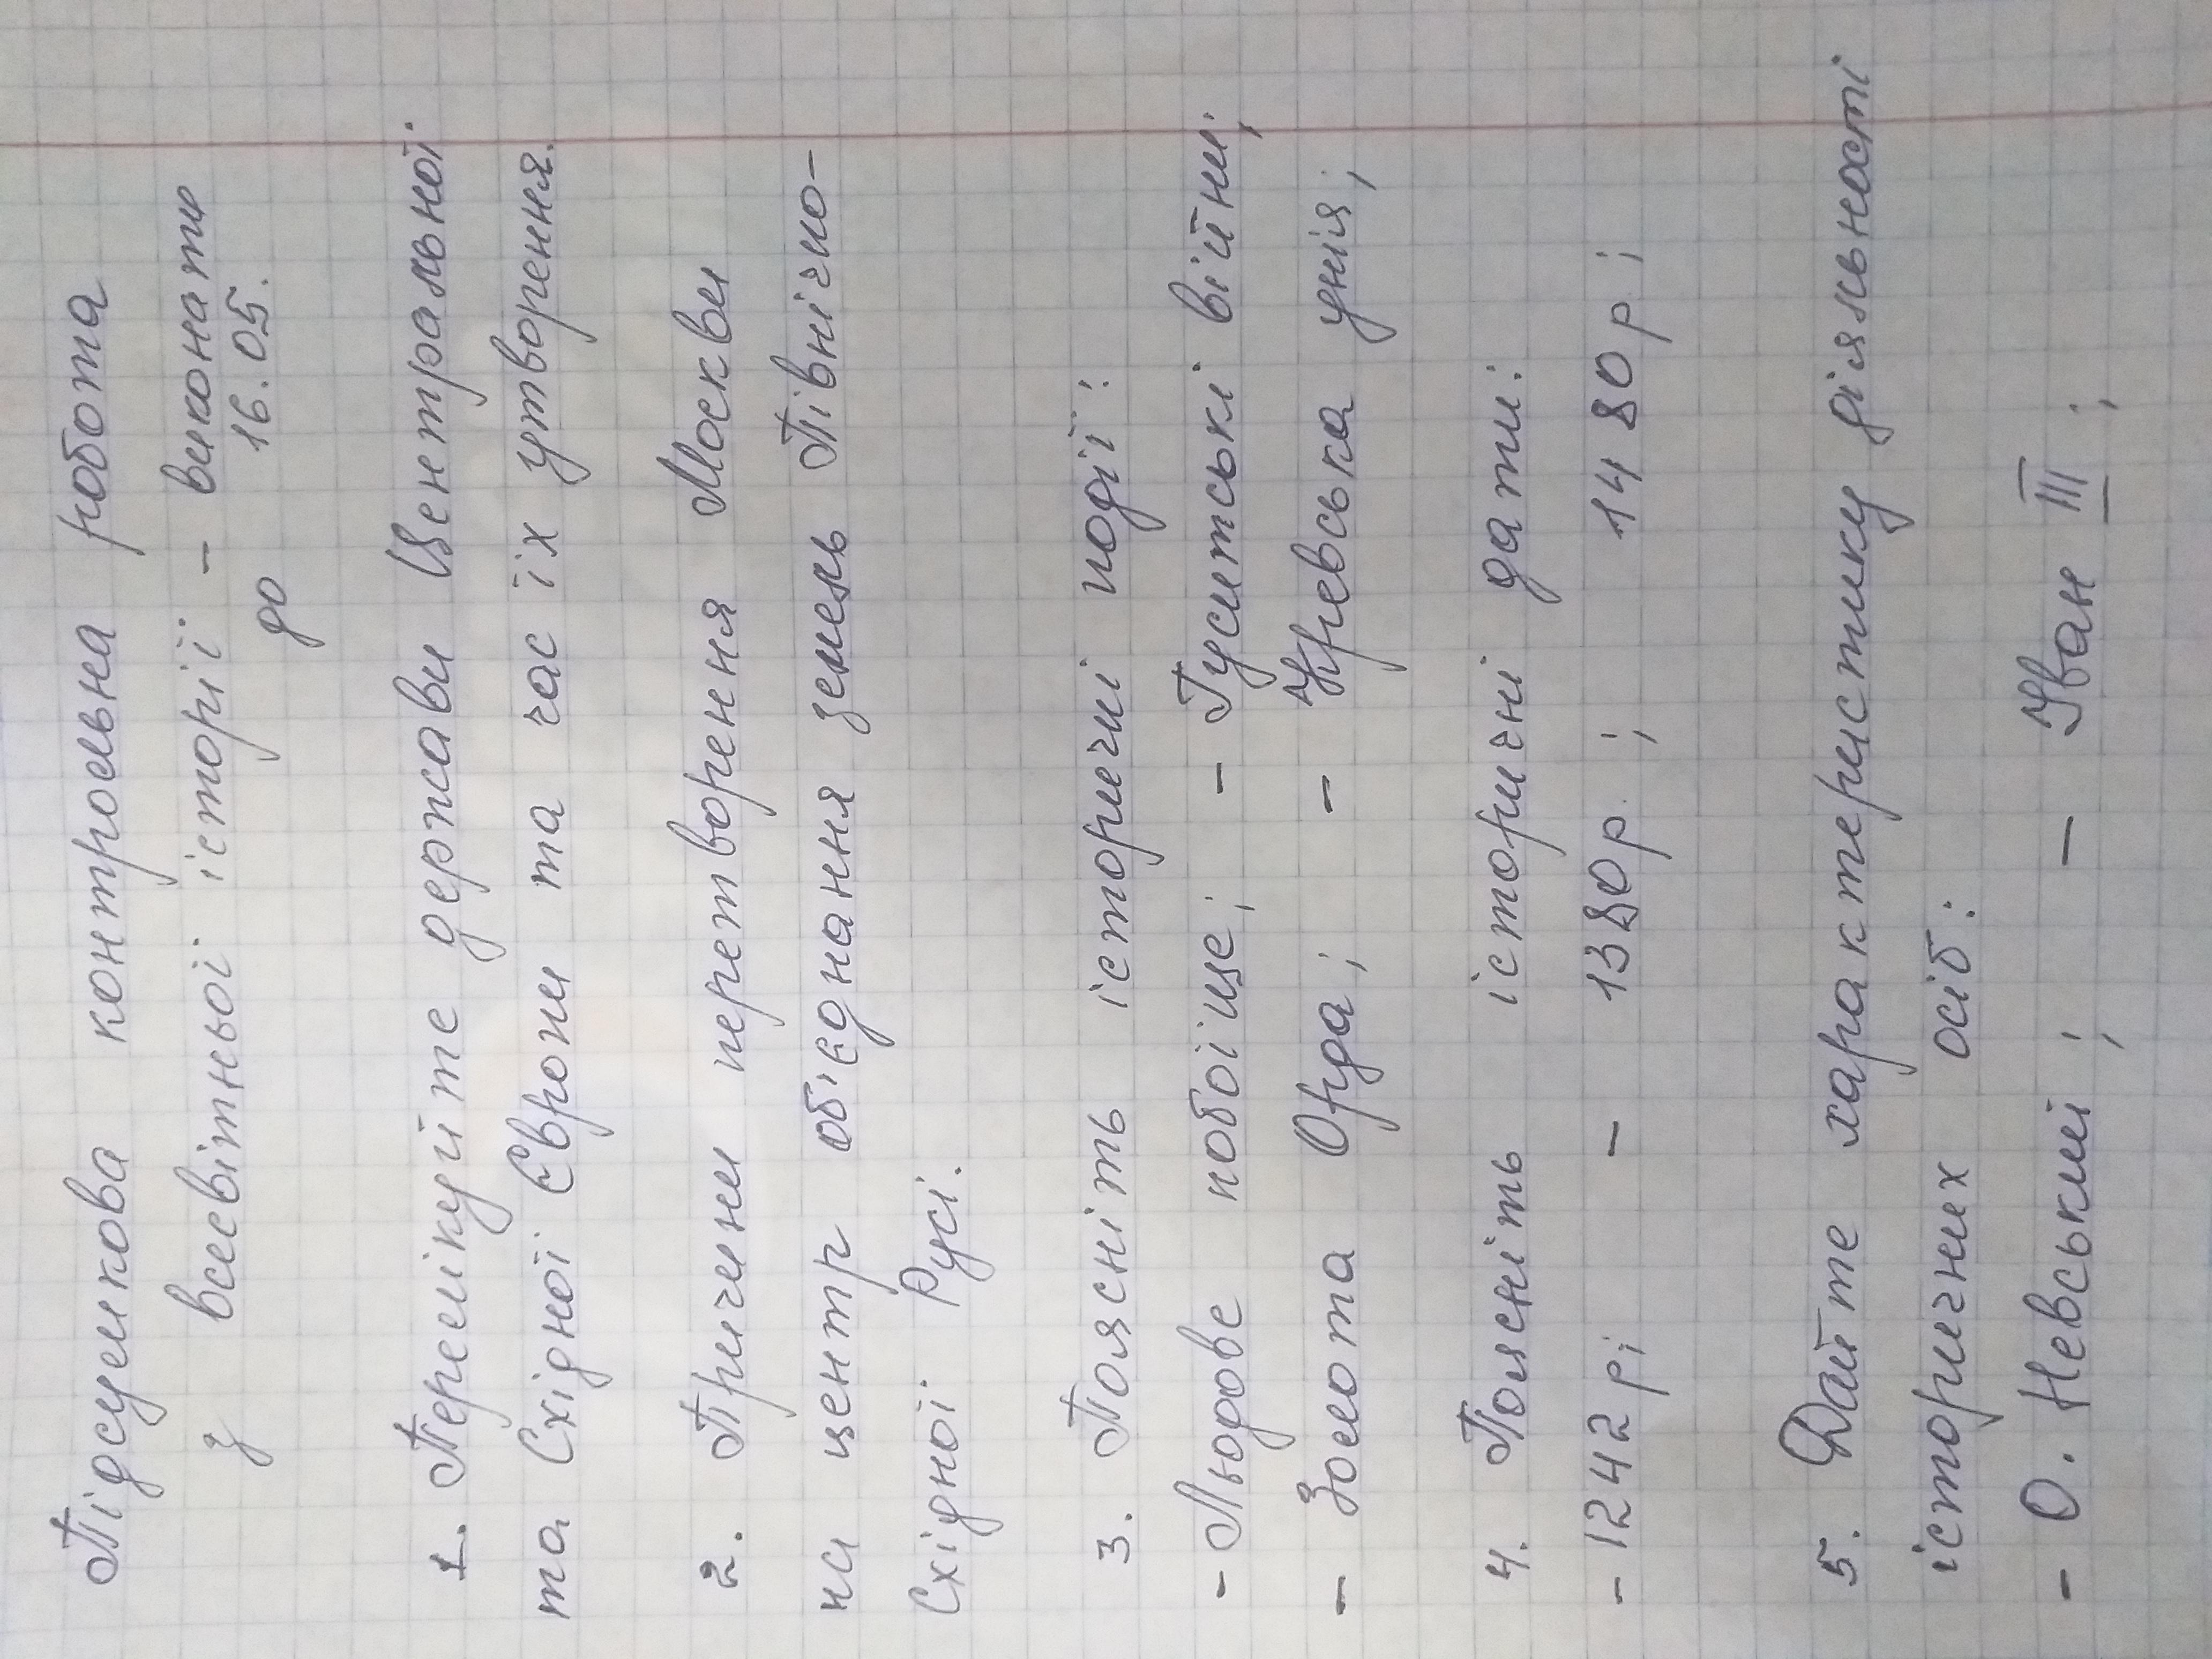 Підсумкова контрольна робота
з всесвітньої історії - виконати
до 16.05.
1. Перелікуйте держави Центральної
та Східної Європи та час їх утворення.
2. Причини перетворення Москви
на центр об'єднання земель Північно-
Східної Русі.
3. Поясніть історичні події:
- Льодове побоїще; - Гуситські війни;
- Золота Орда; - Кревська унія;
4. Поясніть історичні дати:
- 1242 р; - 1380 р.; 1480 р.;
5. Дайте характеристику діяльності
історичних осіб:
- О. Невський; - Іван III;